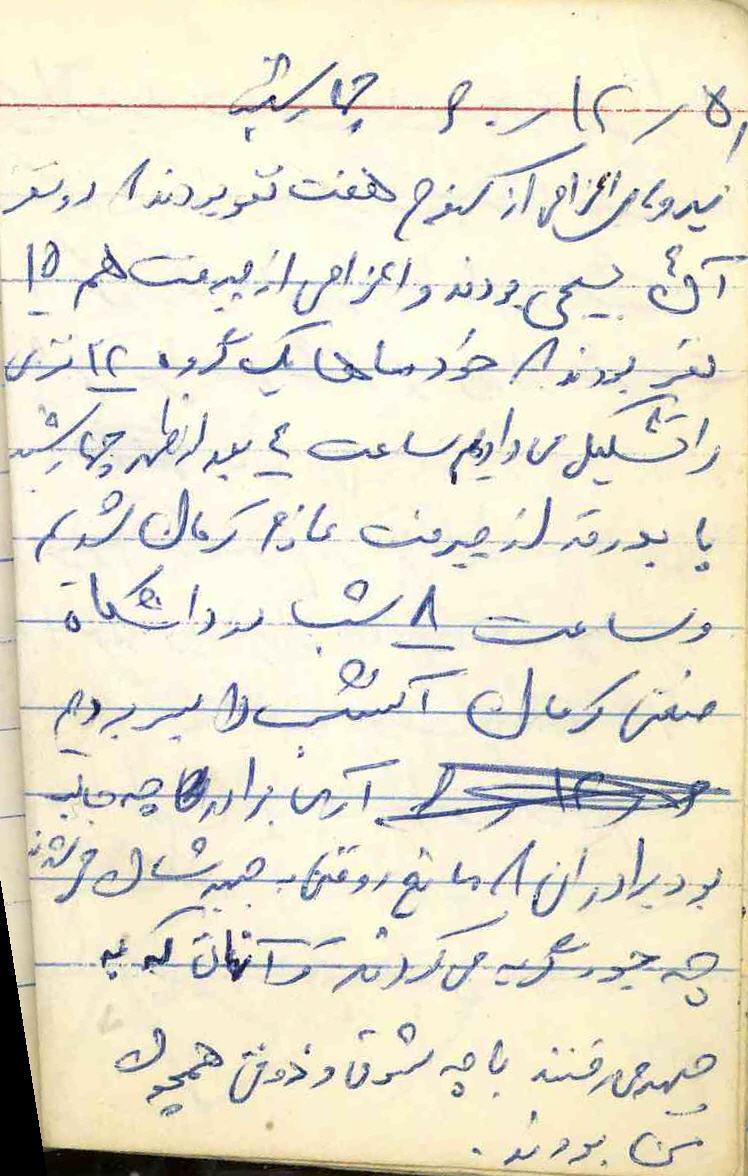 ۶۰/۱۲/۵ چهارشنبه
نیروهای اعزامی از کهنوج هفت نفر بودند ۸ دو نفر
آن بسیجی بودند و اعزامی از جیرفت هم ۱۵
نفر بودند ۸ خود ماها یک گروه ۲۲ نفری
را تشکیل می دادیم ساعت ٤ بعد از ظهر چهارشنبه
با بدرقه از جیرفت عازم کرمان شدیم
و ساعت ۸ شب در دانشگاه
صنعتی کرمان آنشب را بسر بردیم
آری برادر چه جالب
بود برادران ۸ مانع رفتن به جبهه شان
چه جور گریه می کردند و آنان که به
جبهه می رفتند با چه شوق و ذوقی همچون
من بودند .